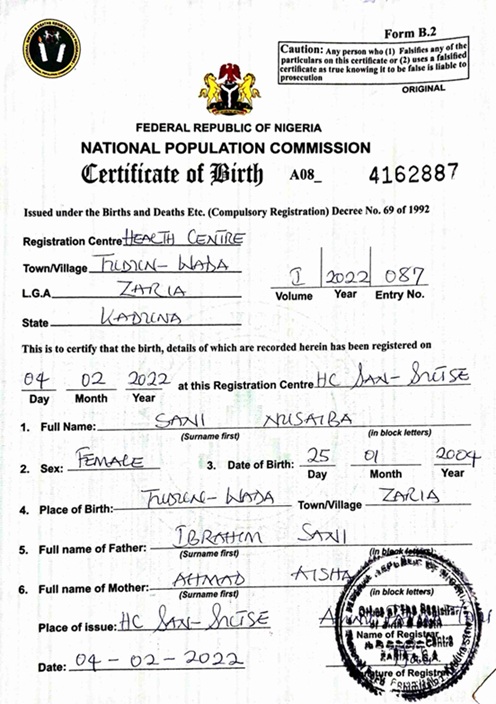 Form B.2
Caution: Any person who (1) Falsifies any of the
particulars on this certificate or (2) uses a falsified
certificate as true knowing it to be false is liable to
prosecution
ORIGINAL
FEDERAL REPUBLIC OF NIGERIA
NATIONAL POPULATION COMMISSION
Certificate of Birth A08_ 4162887
Issued under the Births and Deaths Etc. (Compulsory Registration) Decree No. 69 of 1992
Registration Centre HEALTH CENTRE
Town/Village TUDUN-WADA
L.G.A ZARIA
I 2022 087
Volume Year Entry No.
State KADUNA
This is to certify that the birth, details of which are recorded herein has been registered on
04 02 2022 at this Registration Centre HC
Day Month Year
1. Full Name: SANI NUSAIBA
(Surname first) (in block letters)
2. Sex: FEMALE 3. Date of Birth: 25 01 2004
Day Month Year
4. Place of Birth: TUDUN-WADA Town/Village ZARIA
5. Full name of Father: IBRAHIM SANI
(Surname first) (in block letters)
6. Full name of Mother: AHMAD AISHA
(Surname first) (in block letters)
Place of issue: HC
Name of Registrar
Date: 04-02-2022
Signature of Registrar